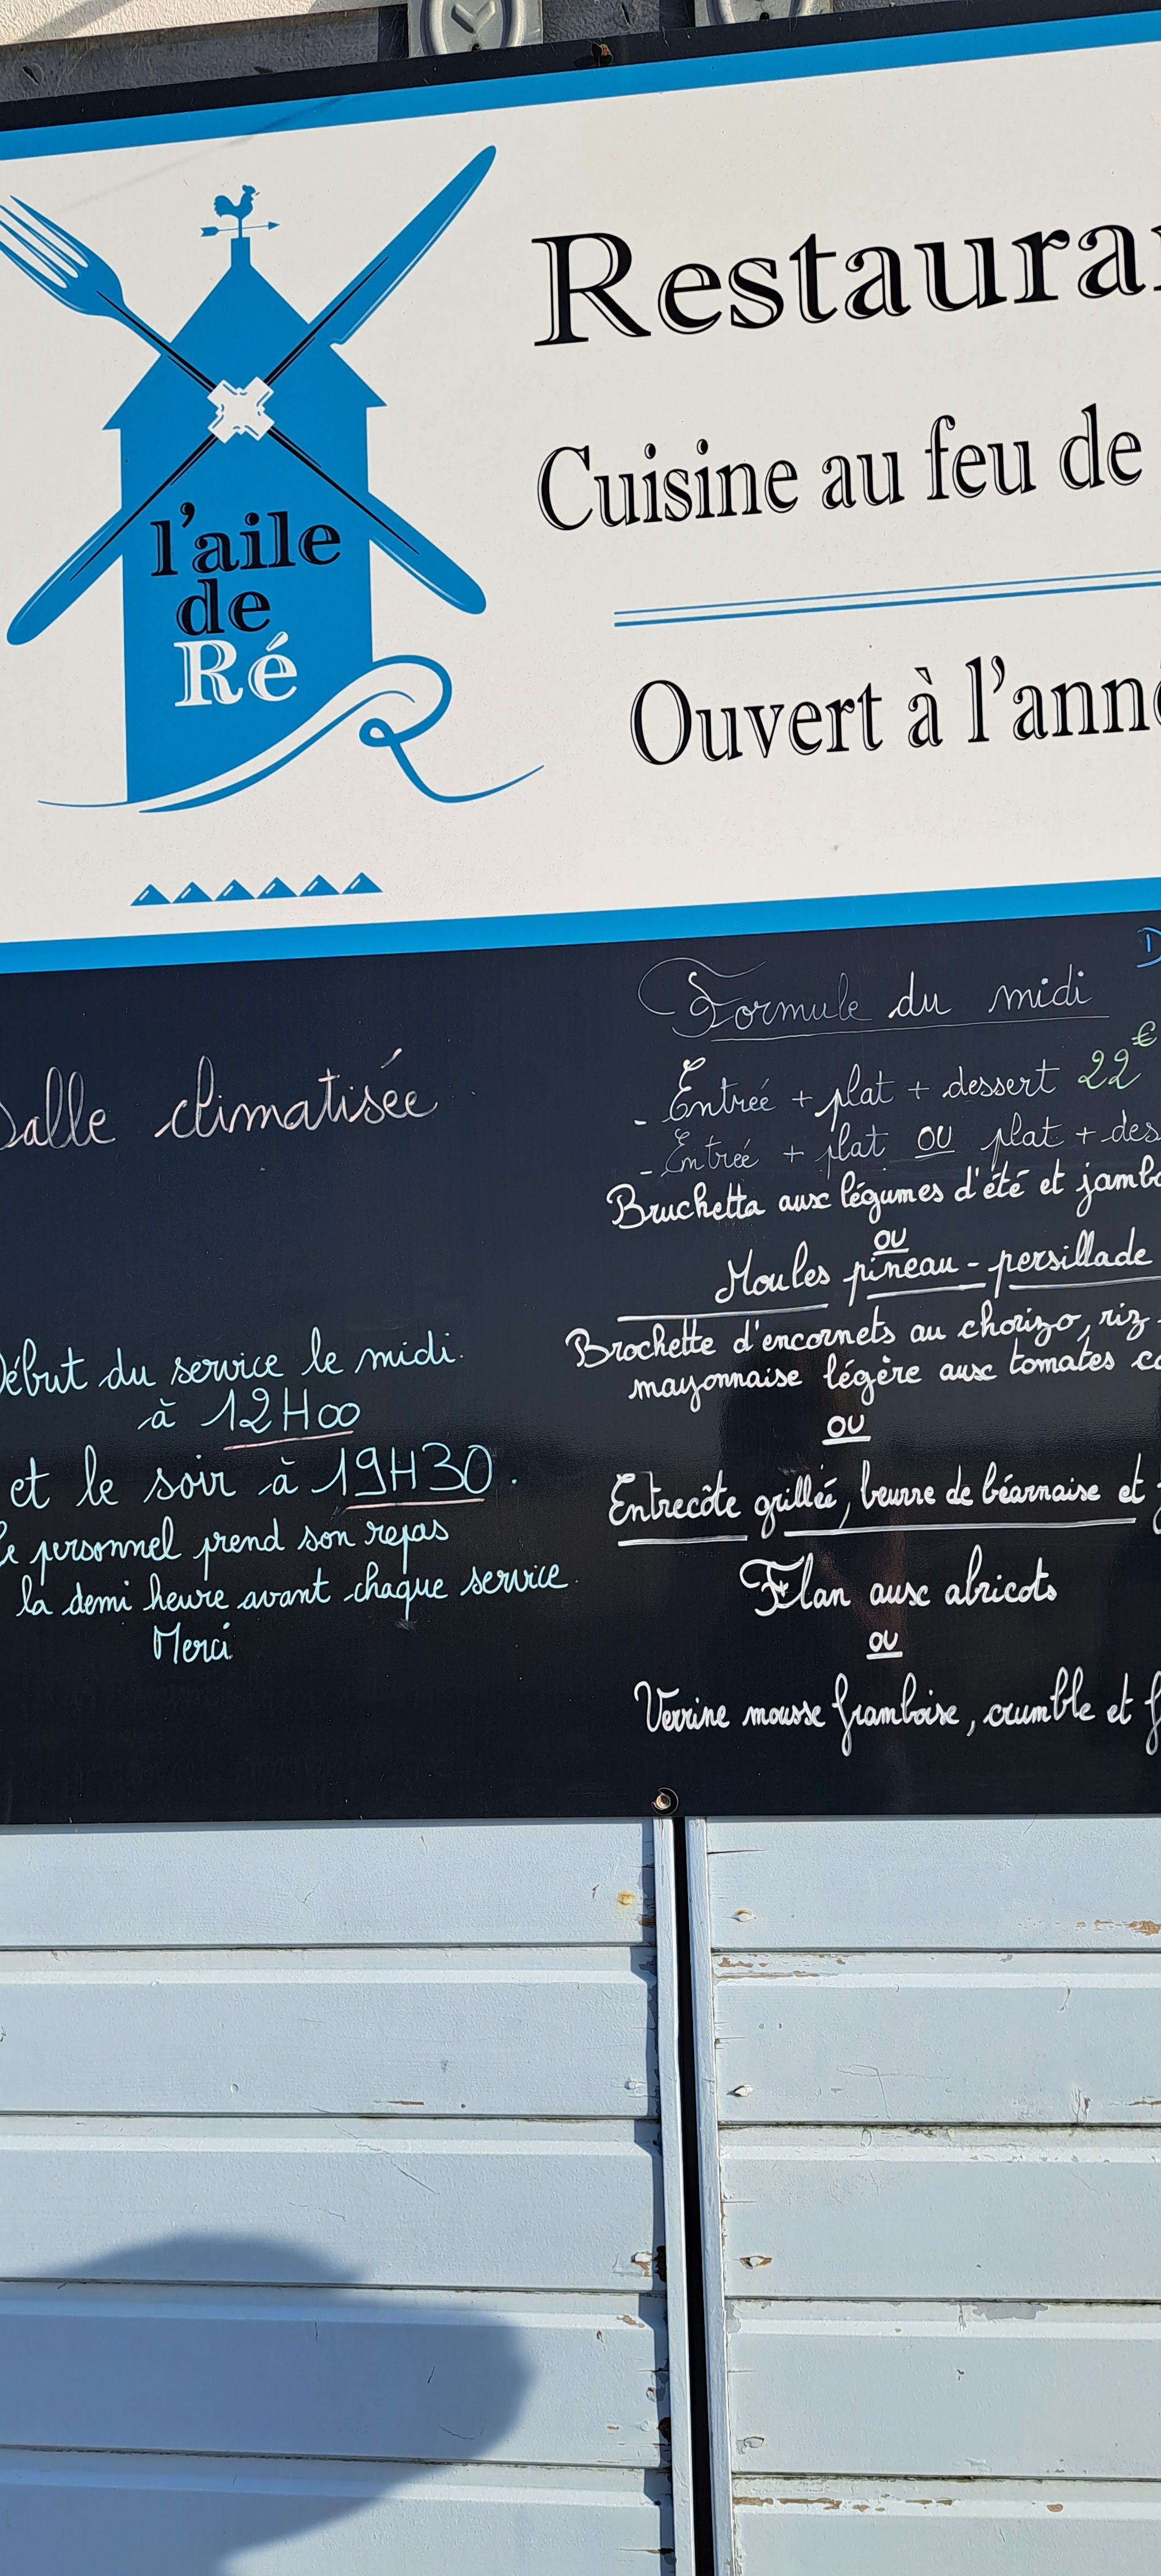 l'aile
de
Ré
Restaura
Cuisine au feu de
Ouvert à l'ann
Salle climatisée
Début du service le midi
à 12H00
et le soir à 19H30.
Le personnel prend son repas
la demi heure avant chaque service.
Merci
D
Formule du midi
- Entrée + plat + dessert 22€
- Entrée + plat OU plat + des
Bruchetta aux légumes d'été et jambo
OU
Moules pineau - persillade
Brochette d'encornets au chorizo, riz
mayonnaise légère aux tomates co
OU
Entrecôte grillée, beurre de béarnaise et
Flan aux abricots
OU
Verrine mousse framboise, crumble et f